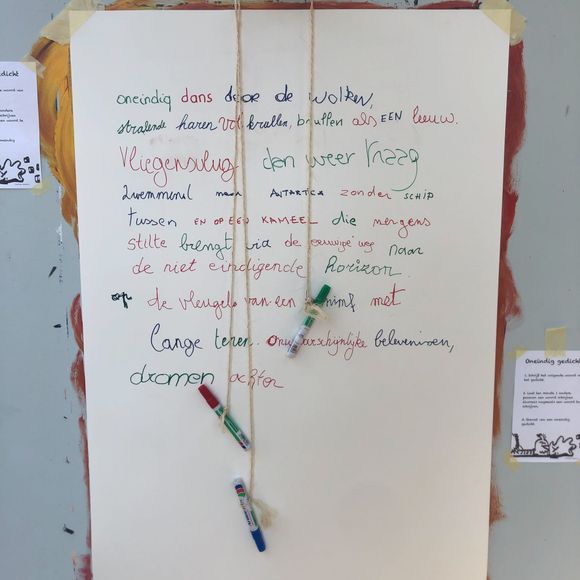 oneindig dans door de wolken,
stralende haren vol krullen, brullen als EEN leeuw.
Vliegensvlug dan weer traag
zwemmend naar ANTARTICA zonder SCHIP
tussen EN OP EEN KAMEEL die nergens
stilte brengt via de eeuwige weg naar
de niet eindigende horizon.
op de vleugels van een nimf met
lange tenen. Onwaarschijnlijke belevenissen,
dromen achter
Oneindig gedicht
1. Schrijf het volgende woord van
het gedicht.
2. Laat ten minste 1 andere
persoon een woord schrijven
alvorens nogmaals een woord te
schrijven.
3. Geniet van een oneindig
gedicht.